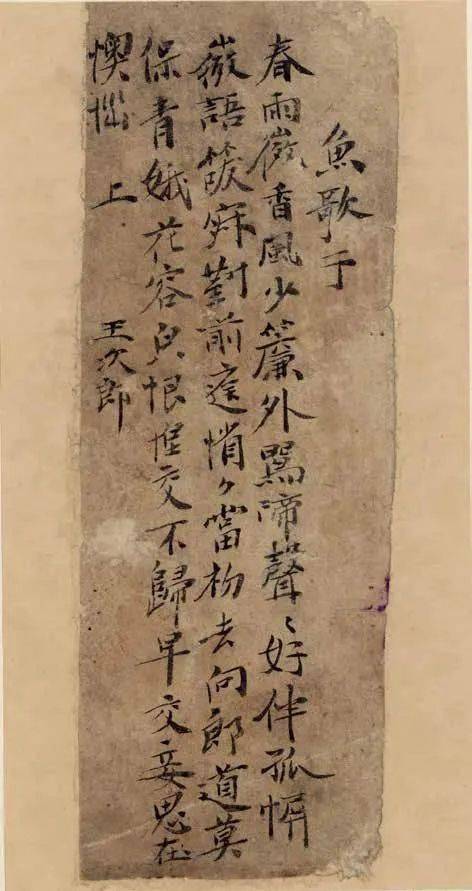 魚歌子
春雨微香風少簾外鶯啼聲〻好伴孤幈
微語笑寂對前庭悄〻當初去向郎道莫
保青娥花容皃恨惶交不歸早交妾思在
懊惱 上 王次郎